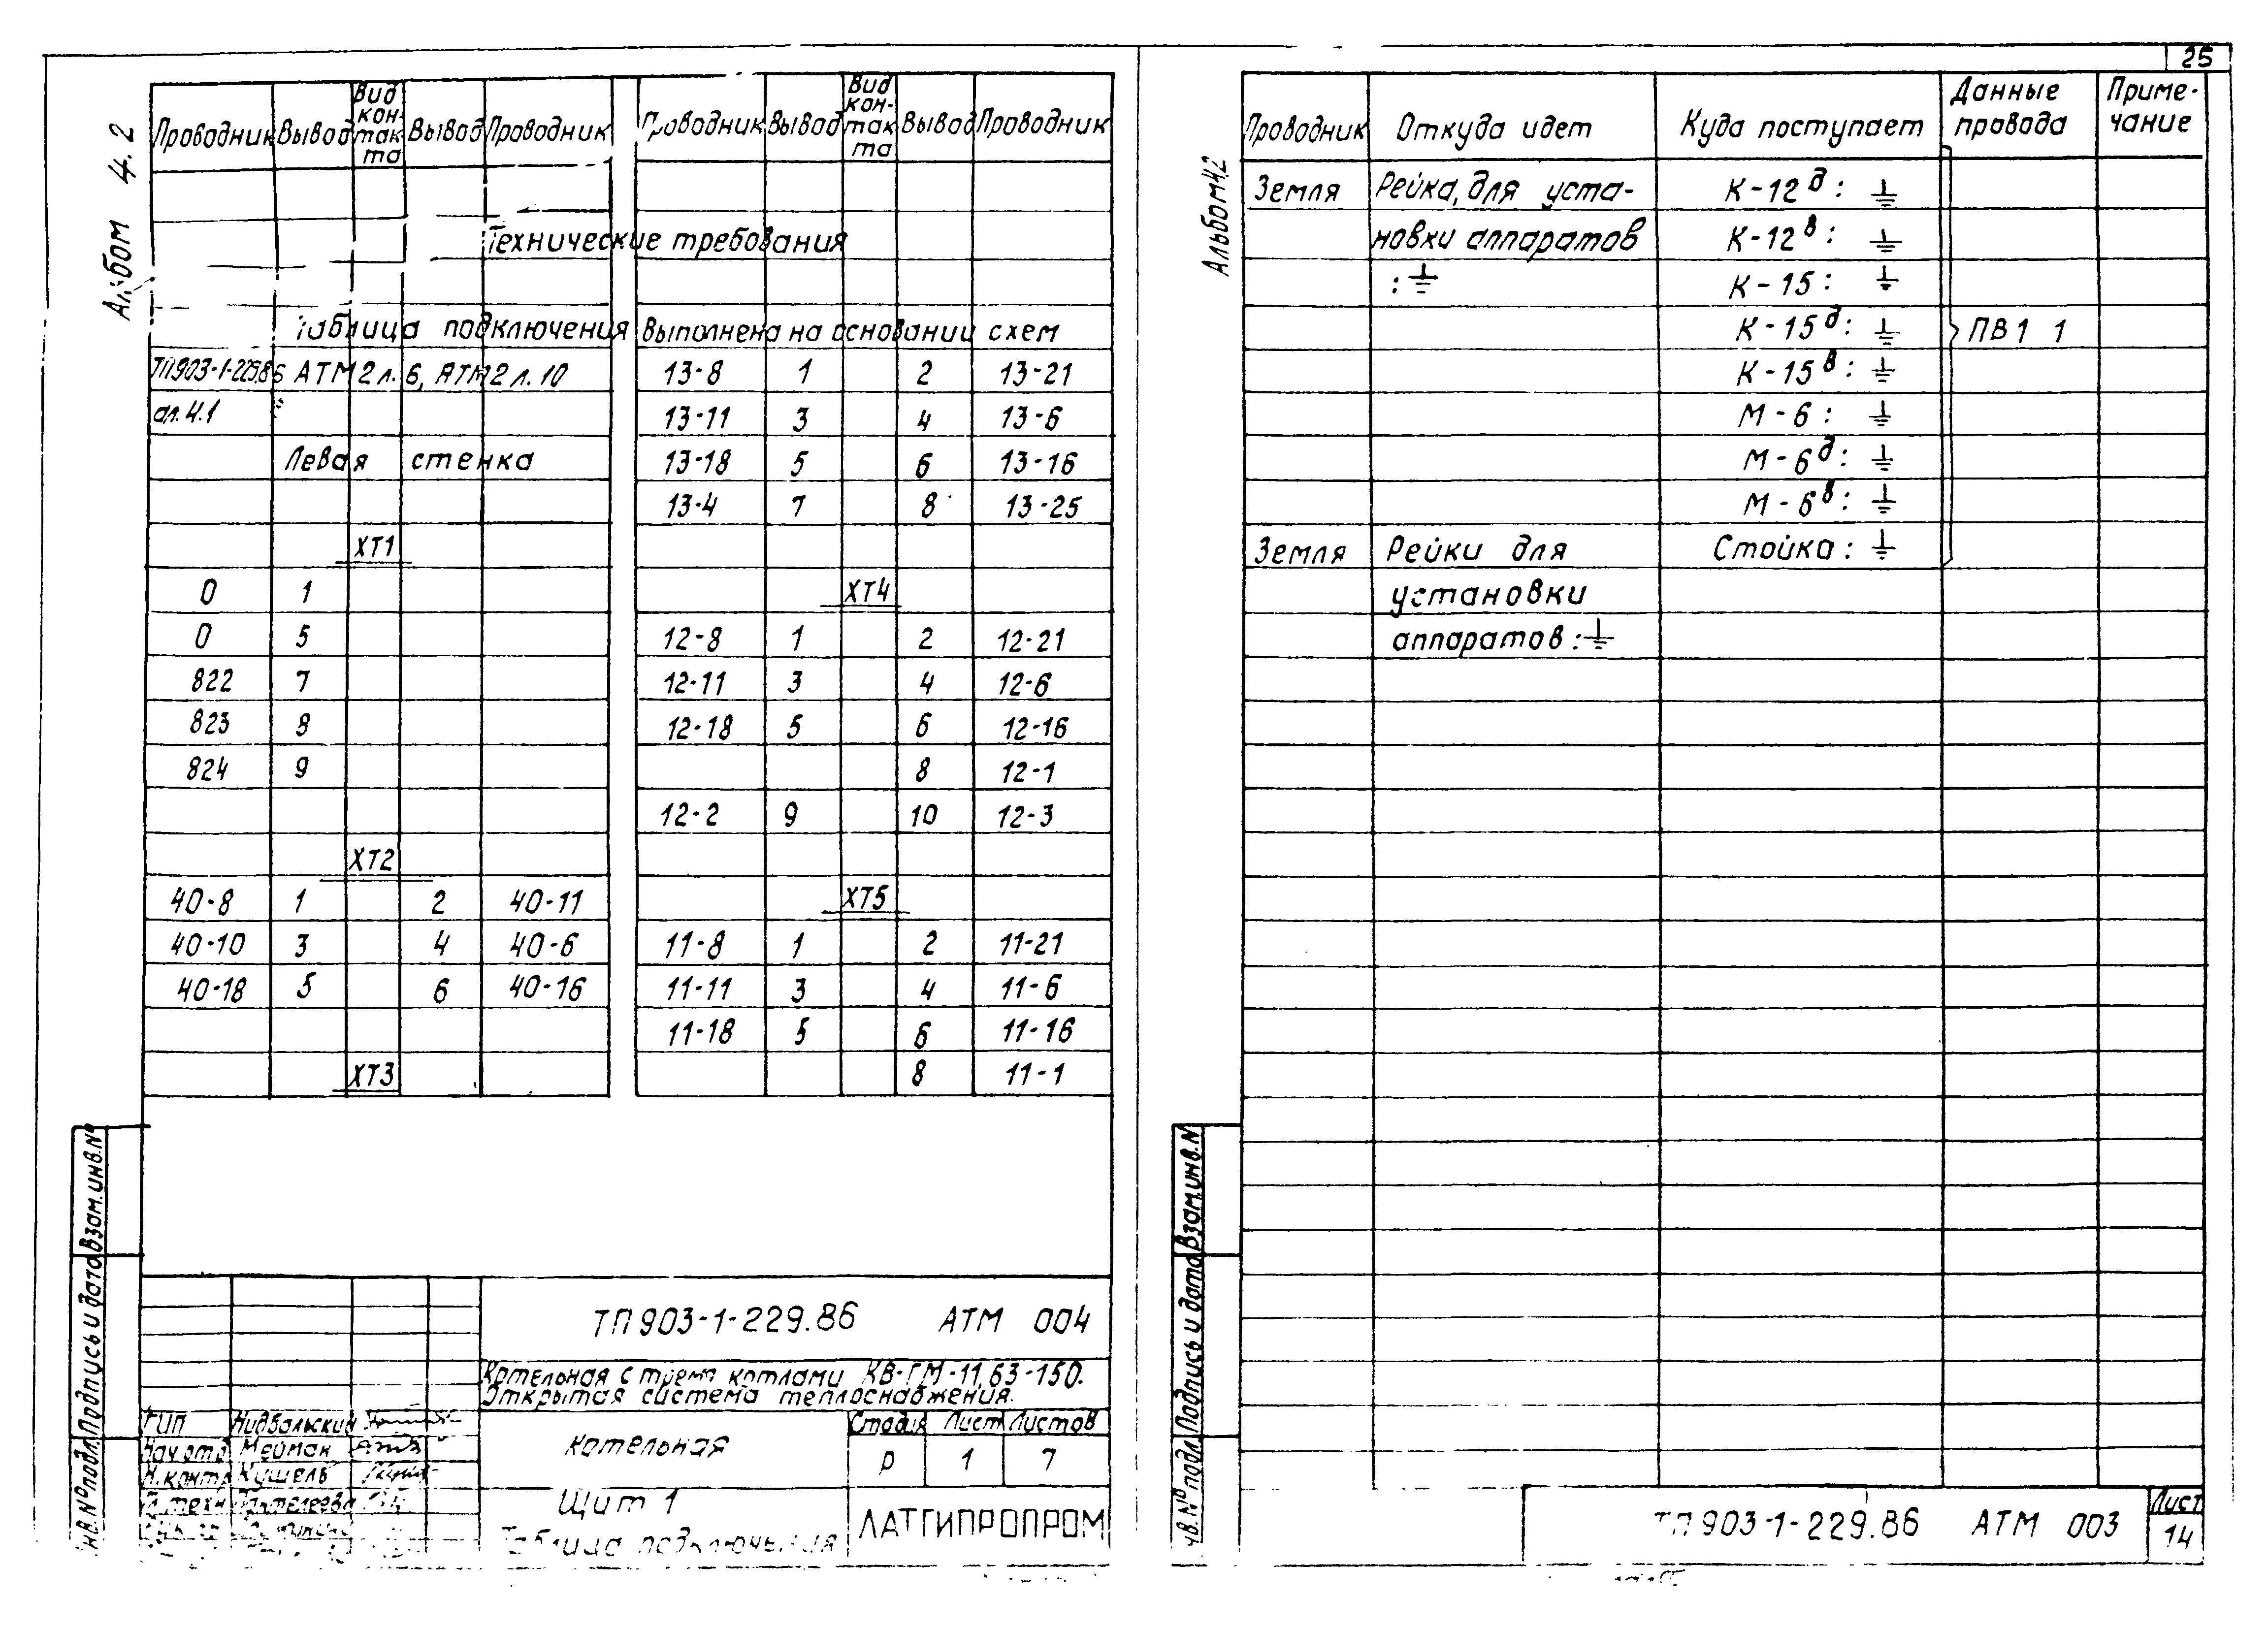 25
Альбом 4.2
Проводник Вывод Вид контакта Вывод Проводник
Технические требования
Таблица подключения выполнена на основании схем
АТМ2 л. 6, АТМ2 л. 10
ал. 4.1
Левая стенка
ХТ1
0 1
0 5
822 7
823 8
824 9
ХТ2
40-8 1 2 40-11
40-10 3 4 40-6
40-18 5 6 40-16
ХТ3
Проводник Вывод Вид контакта Вывод Проводник
13-8 1 2 13-21
13-11 3 4 13-6
13-18 5 6 13-16
13-4 7 8 13-25
ХТ4
12-8 1 2 12-21
12-11 3 4 12-6
12-18 5 6 12-16
8 12-1
12-2 9 10 12-3
ХТ5
11-8 1 2 11-21
11-11 3 4 11-6
11-18 5 6 11-16
8 11-1
Инв. № подл. Подпись и дата Взам. инв. №
ТП 903-1-229.86 АТМ 004
Котельная с тремя котлами КВ-ГМ-11,63-150.
Открытая система теплоснабжения.
ГИП
Нач. отд. Мейман
Н. контр. Кушель
Котельная
Стадия Лист Листов
Р 1 7
Щит 1
Таблица подключения
ЛАТГИПРОПРОМ
Альбом 4.2
Проводник Откуда идет Куда поступает Данные провода Примечание
Земля Рейка, для уста- К-12д: ⏚
новки аппаратов К-12в: ⏚
: ⏚ К-15: ⏚
К-15д: ⏚ ПВ1 1
К-15в: ⏚
М-6: ⏚
М-6д: ⏚
М-6в: ⏚
Земля Рейки для Стойка: ⏚
установки
аппаратов: ⏚
Инв. № подл. Подпись и дата Взам. инв. №
ТП 903-1-229.86 АТМ 003
Лист
14